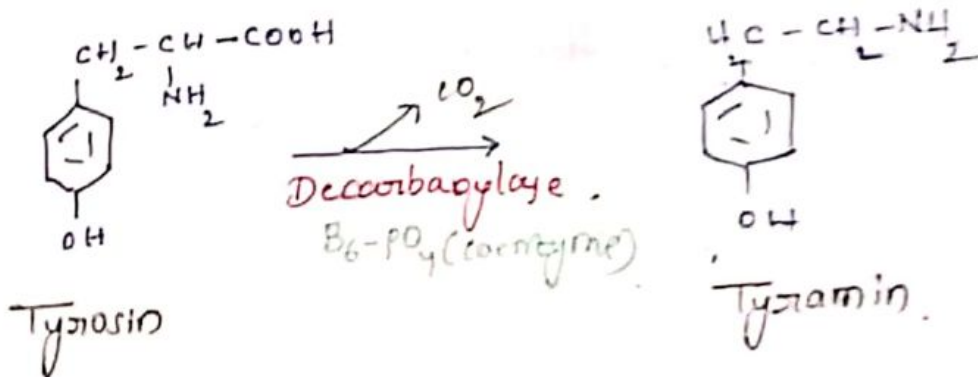 CH2-CH-COOH
NH2
OH
Tyrosin
CO2
Decarboxylase.
B6-PO4 (coenzyme)
H2C-CH2-NH2
OH
Tyramin.